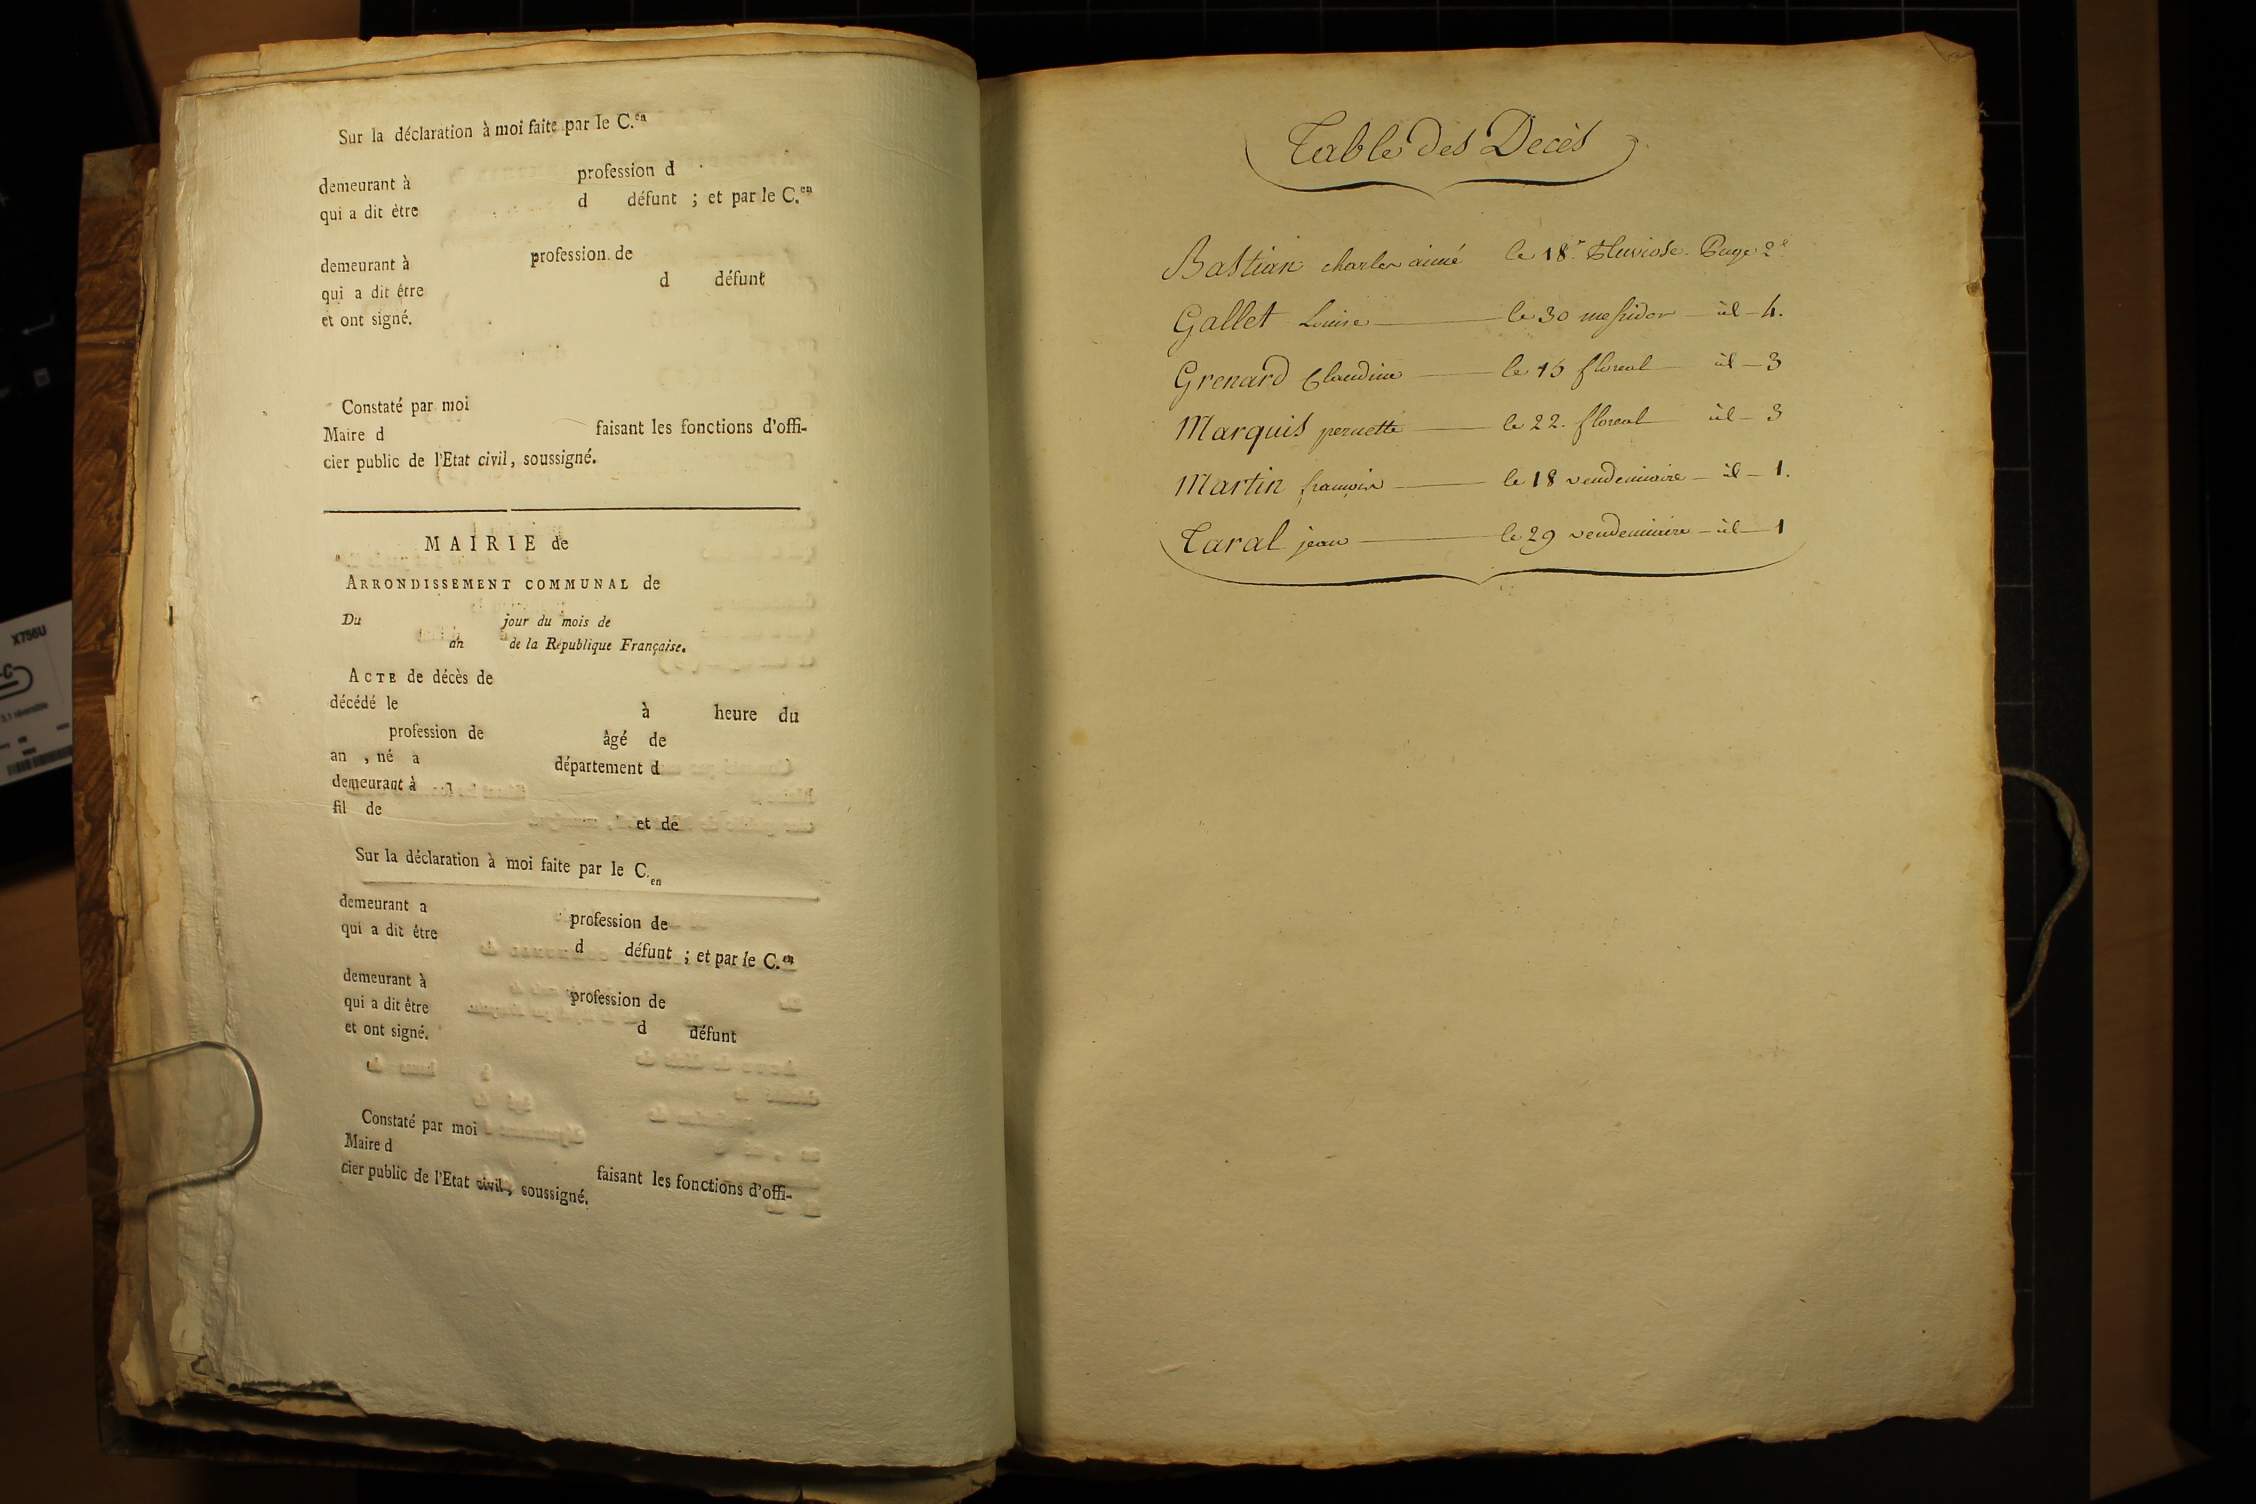 Sur la déclaration à moi faite par le C.en
demeurant à profession d
qui a dit être d défunt ; et par le C.en
demeurant à profession de
qui a dit être d défunt
et ont signé.
Constaté par moi
Maire d faisant les fonctions d'offi-
cier public de l'Etat civil, soussigné.
MAIRIE de
ARRONDISSEMENT COMMUNAL de
Du jour du mois de
an de la République Française.
ACTE de décès de
décédé le à heure du
profession de âgé de
an , né a département d
demeurant à
fil de et de
Sur la déclaration à moi faite par le C.en
demeurant a profession de
qui a dit être d défunt ; et par le C.en
demeurant à profession de
qui a dit être d défunt
et ont signé.
Constaté par moi
Maire d faisant les fonctions d'offi-
cier public de l'Etat civil, soussigné.
Table des Decès
Bastian charles aimé le 18.r Pluviose. Page 2e
Gallet Louise le 30 messidor id 4.
Grenard Claudine le 15 floreal id 3
Marquis pernette le 22. floreal id 3
Martin francois le 18 vendemiaire id 1.
Taral jean le 29 vendemiaire id 1
X756U